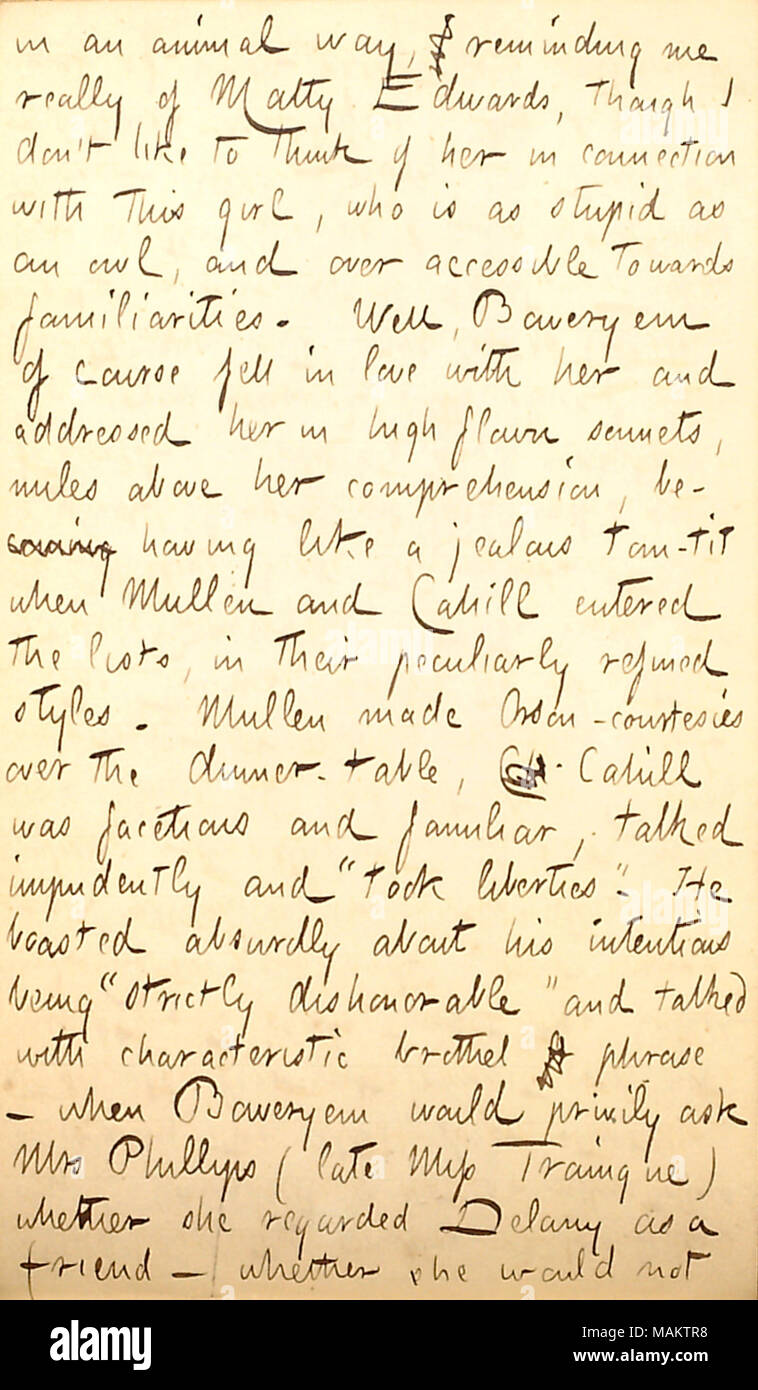 in an animal way, reminding me
really of Matty Edwards, though I
don't like to think of her in connection
with this girl, who is as stupid as
an owl, and over accessible towards
familiarities. Well, Boweryem
of course fell in love with her and
addressed her in high flown sonnets,
miles above her comprehension, be-
having like a jealous tom-tit
when Mullen and Cahill entered
the lists, in their peculiarly refined
styles. Mullen made Orson-courtesies
over the dinner-table, Cahill
was facetious and familiar, talked
impudently and "took liberties". He
boasted absurdly about his intentions
being "strictly dishonorable" and talked
with characteristic brothel phrase
— when Boweryem would privily ask
Mrs Phillips (late Miss Trainque)
whether she regarded Delany as a
friend — whether she would not
alamy
Image ID: MAKTR8
www.alamy.com